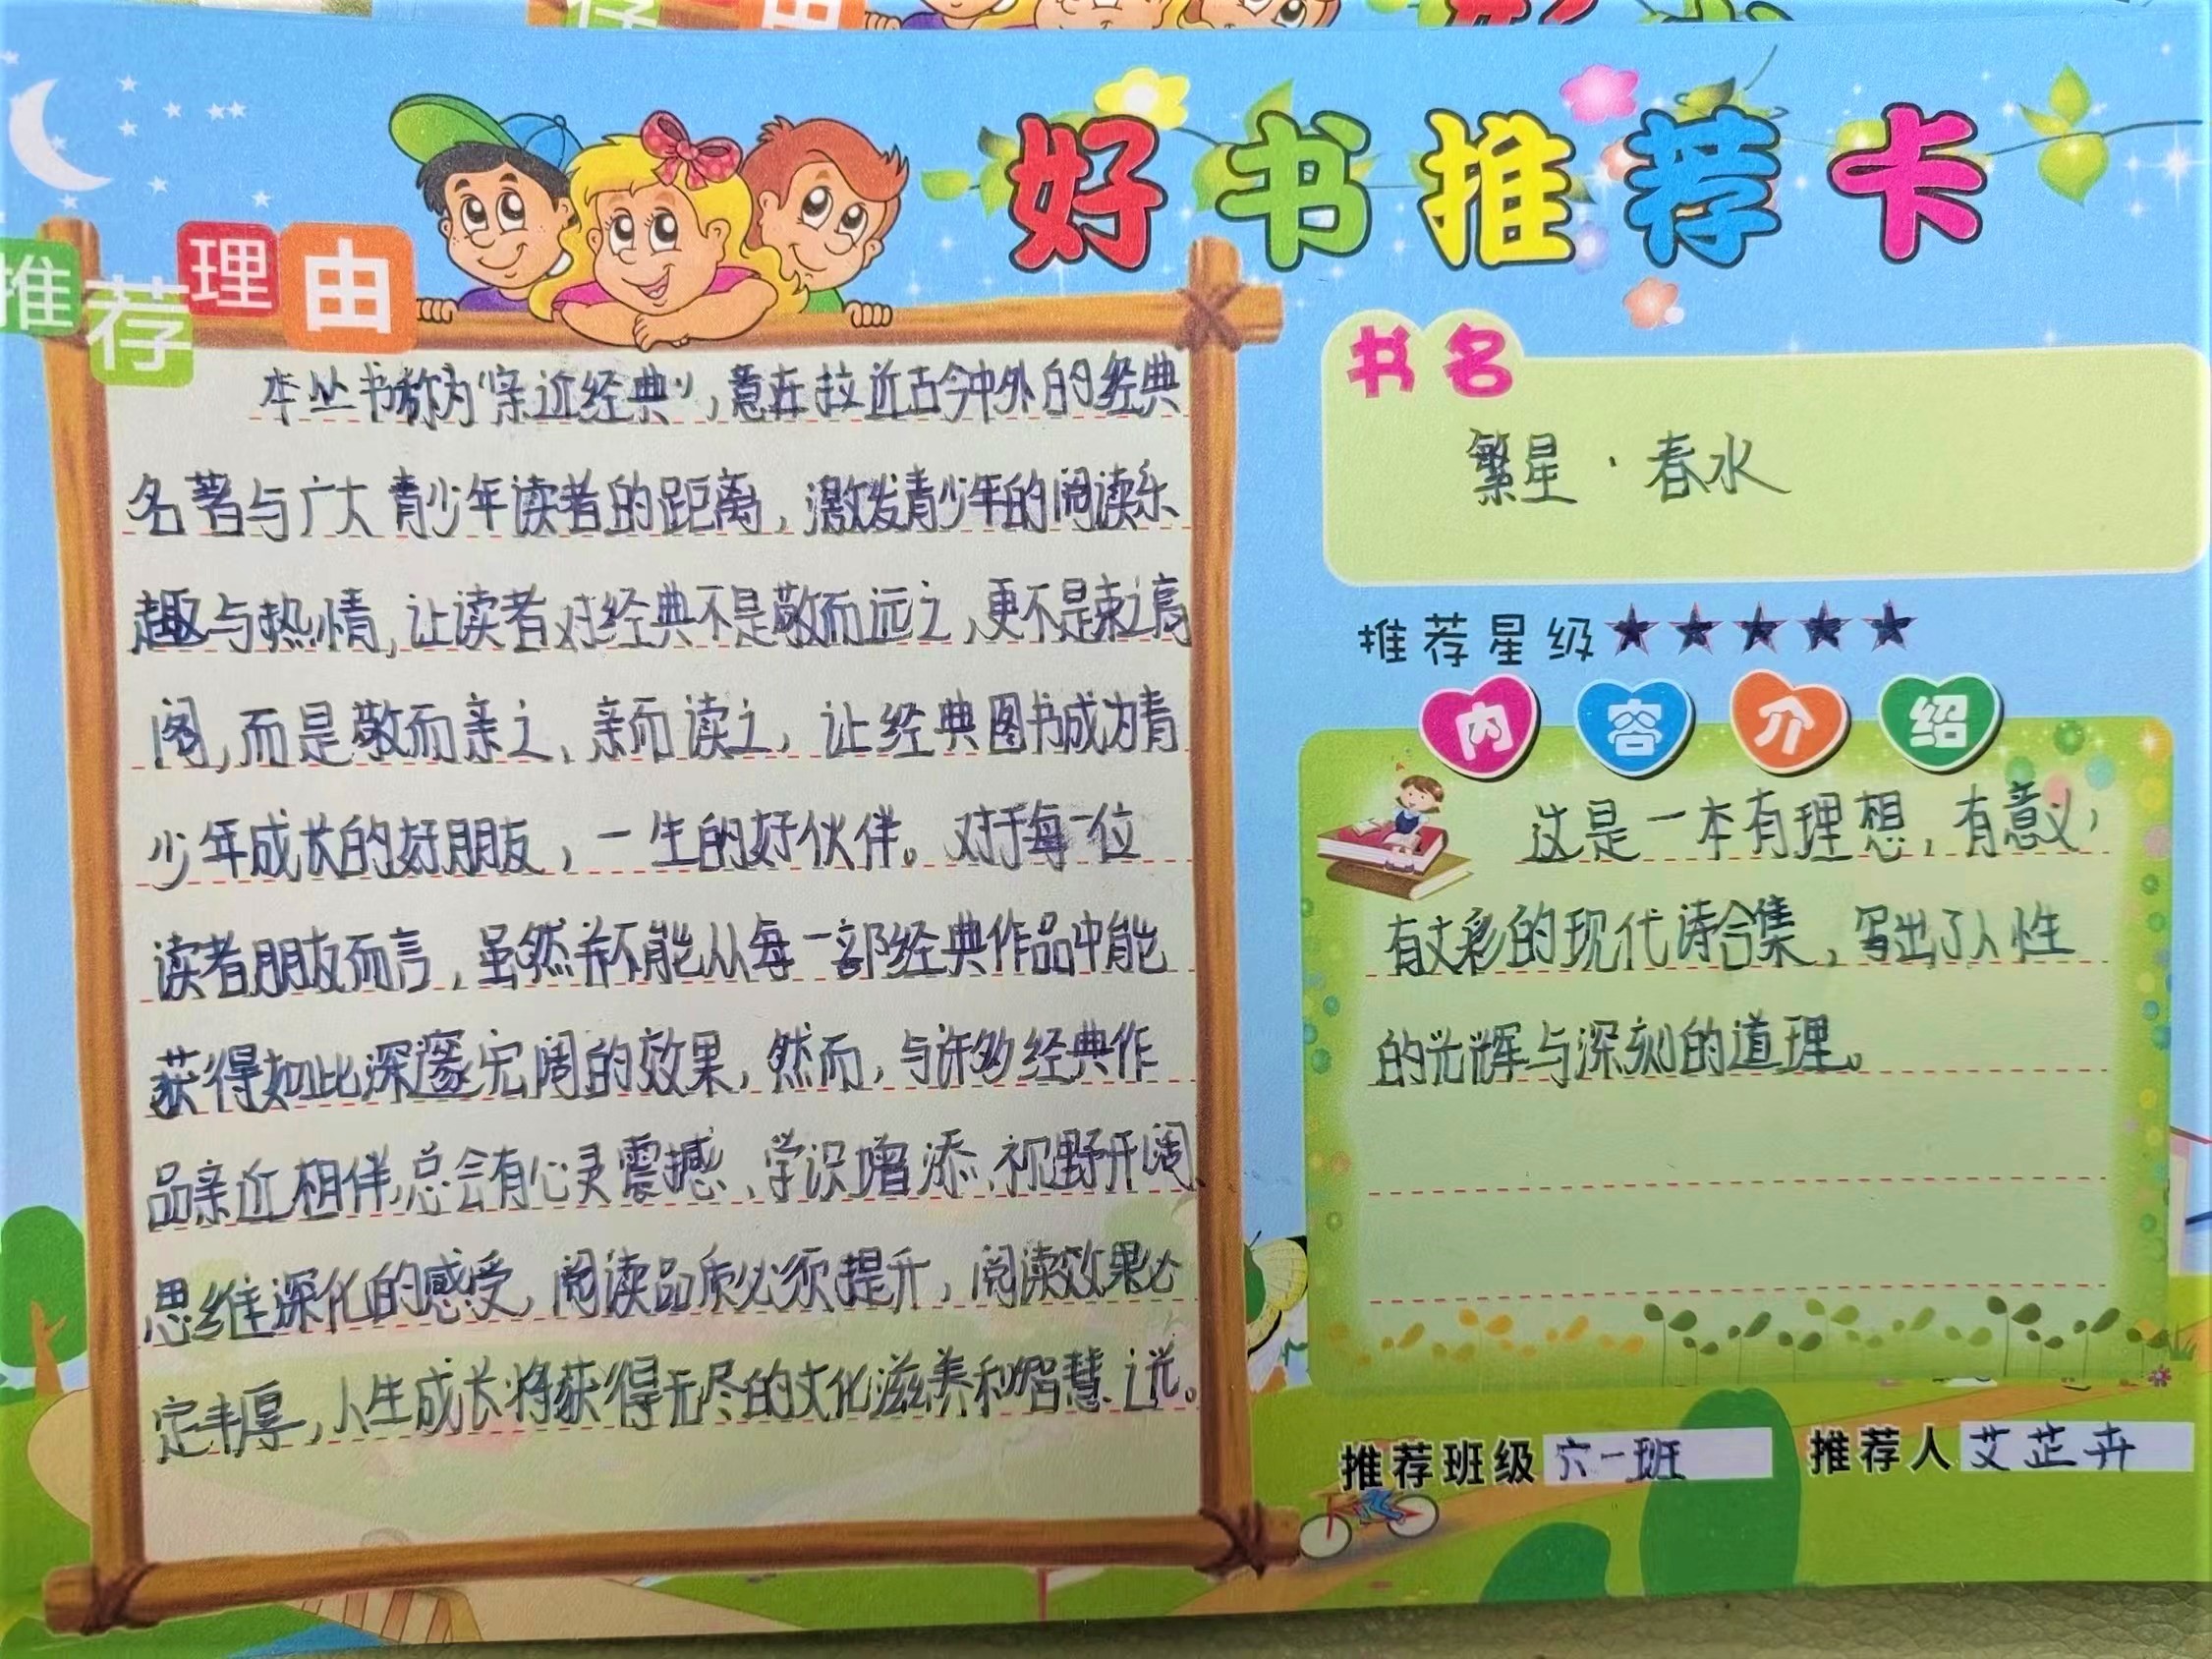 好书推荐卡
推荐理由
本丛书称为“亲近经典”,意在拉近古今中外的经典
名著与广大青少年读者的距离,激发青少年的阅读乐
趣与热情,让读者对经典不是敬而远之,更不是束之高
阁,而是敬而亲之、亲而读之,让经典图书成为青
少年成长的好朋友,一生的好伙伴。对于每一位
读者朋友而言,虽然并不能从每一部经典作品中能
获得如此深邃宏阔的效果,然而,与许多经典作
品亲近相伴,总会有心灵震撼、学识增添、视野开阔、
思维深化的感受,阅读品质必须提升,阅读效果必
定丰厚,人生成长将获得无尽的文化滋养和智慧之光。
书名
繁星·春水
推荐星级★★★★★
内容介绍
这是一本有理想,有意义,
有文彩的现代诗合集,写出了人性
的光辉与深刻的道理。
推荐班级 六一班 推荐人 艾芷卉